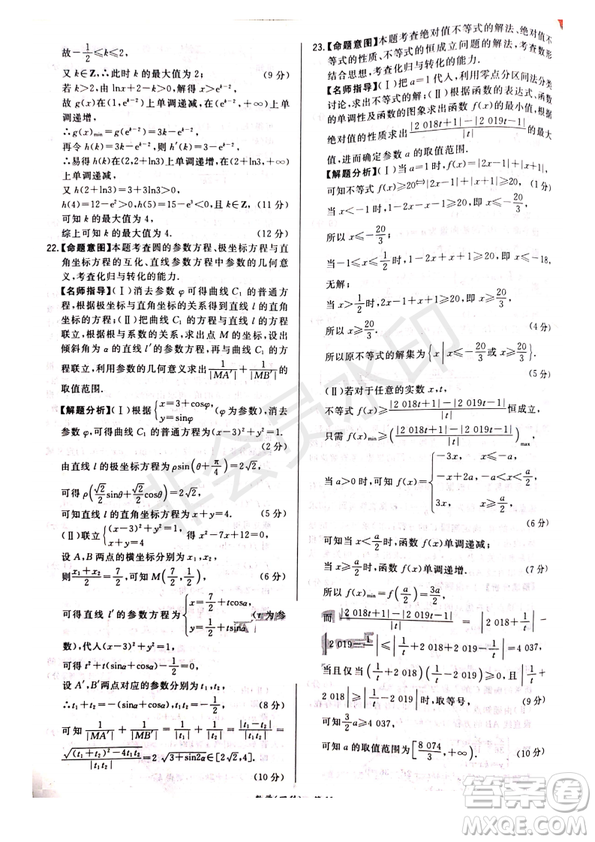 故-1/2≤k≤2,
又 k∈Z,故此时 k 的最大值为 2; (9 分)
若 k>2,由 lnx+2-k=0 可得 x=e^{k-2},
故 g(x)在(1,e^{k-2})上单调递减,在(e^{k-2},+∞)上单
调递增,
∴g(x)min=g(e^{k-2})=3k-e^{k-2},
再令 h(k)=3k-e^{k-2},则 h′(k)=3-e^{k-2},
易得 h(x)在(2,2+ln3)上单调递增,在(2+ln3,+∞)
上单调递减,
又 h(2+ln3)=3+3ln3>0,h(2)=5>0,
h(4)=12-e²>0,h(5)=15-e³<0, (11 分)
可知 k 的最大值为 4,
综上可知 k 的最大值为 4. (12 分)
22.【命题意图】本题考查圆的参数方程、极坐标方程与直
角坐标方程的互化、直线参数方程中参数的几何意
义,考查化归与转化的能力.
【名师指导】(Ⅰ)消去参数 φ 可得曲线 C₁ 的普通方
程,根据极坐标与直角坐标的互化可得直线 l 的直角
坐标方程;(Ⅱ)联立曲线 C₁ 与直线 l 的普通方程,
根据根与系数的关系,求出点 M 的坐标,设出
倾斜角为 α 的直线 l′的参数方程,与曲线 C₁ 的普通
方程联立,利用参数的几何意义求出 1/|MA′|+1/|MB′| 的
取值范围.
【解题分析】(Ⅰ)由{x=3+cosφ, y=sinφ (φ 为参数),消去
参数 φ,可得曲线 C₁ 的普通方程为(x-3)²+y²=1.
(2 分)
由直线 l 的极坐标方程为 ρsin(θ+π/4)=2√2,
可得 ρ(√2/2 sinθ+√2/2 cosθ)=2√2, (4 分)
可得直线 l 的直角坐标方程为 x+y=4. (5 分)
(Ⅱ)联立{(x-3)²+y²=1, x+y=4 得 x²-7x+12=0,
设 A,B 两点的横坐标分别为 x₁,x₂,
则(x₁+x₂)/2=7/2,可知 M(7/2,1/2), (6 分)
可得直线 l′的参数方程为{x=7/2+tcosα, y=1/2+tsinα (t 为参
数),代入(x-3)²+y²=1,
可得 t²+(sinα+cosα)t-1/2=0, (8 分)
设 A′,B′两点对应的参数分别为 t₁,t₂,
∴t₁+t₂=-(sinα+cosα),t₁t₂=-1/2,
可知 1/|MA′|+1/|MB′|=1/|t₁|+1/|t₂|=|t₁-t₂|/|t₁t₂|=
√((t₁+t₂)²-4t₁t₂)/|t₁t₂|=2√(3+sin2α)∈[2√2,4].
(10 分)
23.【命题意图】本题考查绝对值不等式的解法、绝对值不
等式的性质、不等式的恒成立问题的解法,考查数形
结合思想,考查化归与转化的能力.
【名师指导】(Ⅰ)把 a=1 代入,利用零点分区间法分类
讨论,求出不等式的解集;(Ⅱ)根据函数的表达式、函数
的单调性及函数的图象求出函数 f(x)的最小值,根据
绝对值的性质求出 |2 018t+1|-|2 019t-1|/|t| 的最大
值,进而确定参数 a 的取值范围.
【解题分析】(Ⅰ)当 a=1 时,f(x)=|2x-1|+|x|,
可知不等式 f(x)≥20⇔|2x-1|+|x+1|≥20,
当 x<-1 时,-2x+1-x-1≥20,即 x≤-20/3,
所以 x≤-20/3;
当-1≤x<1/2 时,-2x+1+x+1≥20,即 x≤-18,
无解;
当 x≥1/2 时,2x-1+x+1≥20,即 x≥20/3,
所以 x≥20/3. (4 分)
所以原不等式的解集为{x|x≤-20/3 或 x≥20/3}.
(5 分)
(Ⅱ)若对于任意的实数 x,t,
不等式 f(x)≥(|2 018t+1|-|2 019t-1|)/|t| 恒成立,
只需 f(x)min≥[(|2 018t+1|-|2 019t-1|)/|t|]max,
当 a>0 时,可知 f(x)={-3x, x≤-a; -x+2a, -a<x<a/2; 3x, x≥a/2
(6 分)
可知当 x<a/2 时,函数 f(x)单调递减;
当 x≥a/2 时,函数 f(x)单调递增.
所以 f(x)min=f(a/2)=3a/2;
而 (|2 018t+1|-|2 019t-1|)/|t|=|2 018+1/t|-
|2 019-1/t|≤|1/t+2 018+2 019-1/t|=4 037,
当且仅当(1/t+2 018)(1/t-2 019)≥0,且|1/t+
2 018|≥|1/t-2 019|时,取等号, (9 分)
可知3a/2≥4 037,
可知 a 的取值范围为[8 074/3,+∞). (10 分)
非会员水印
作业精灵